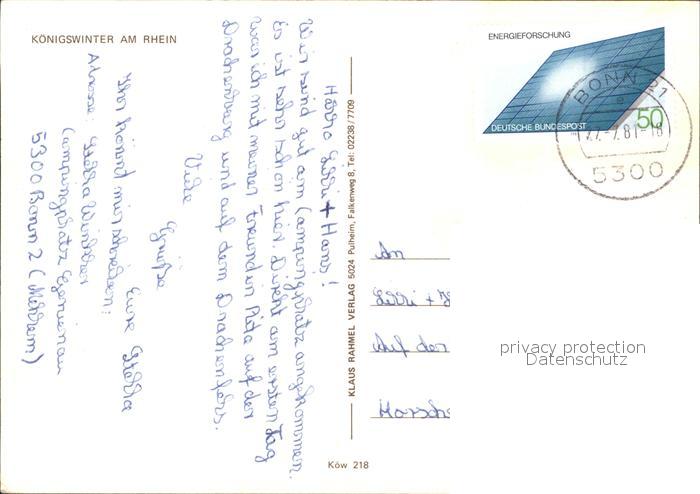 KÖNIGSWINTER AM RHEIN
Hallo Lilli + Hans!
Wir sind gut am Campingplatz angekommen.
Es ist sehr schön hier. Direkt am ersten Tag
war ich mit meiner Freundin Rita auf der
Drachenburg und auf dem Drachenfels.
Viele
Grüße
Eure Stella
Ihr könnt mir schreiben:
Adresse: Stella Winkler
Campingplatz Genienau
5300 Bonn 2 (Mehlem)
KLAUS RAHMEL VERLAG 5024 Pulheim, Falkenweg 8, Tel: 02238/7709
Köw 218
ENERGIEFORSCHUNG
DEUTSCHE BUNDESPOST
50
BONN 21
-7.81-18
5300
An
Lilli +
Auf der
privacy protection
Datenschutz